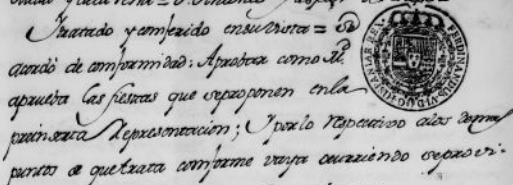 Tratado y conferido en su Vista = Se
acordó de conformidad: Aprobar como se
aprueba las fiestas que se proponen en la
preinserta Representacion; Y por lo respectivo a los demas
puntos de que trata conforme vaya ocurriendo se provi-
FERDINANDUS VI D G HISPANIAR REX